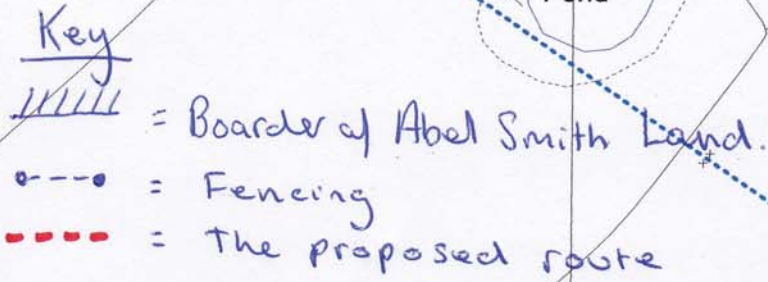 Key
= Boarder of Abel Smith Land.
= Fencing
= The proposed route